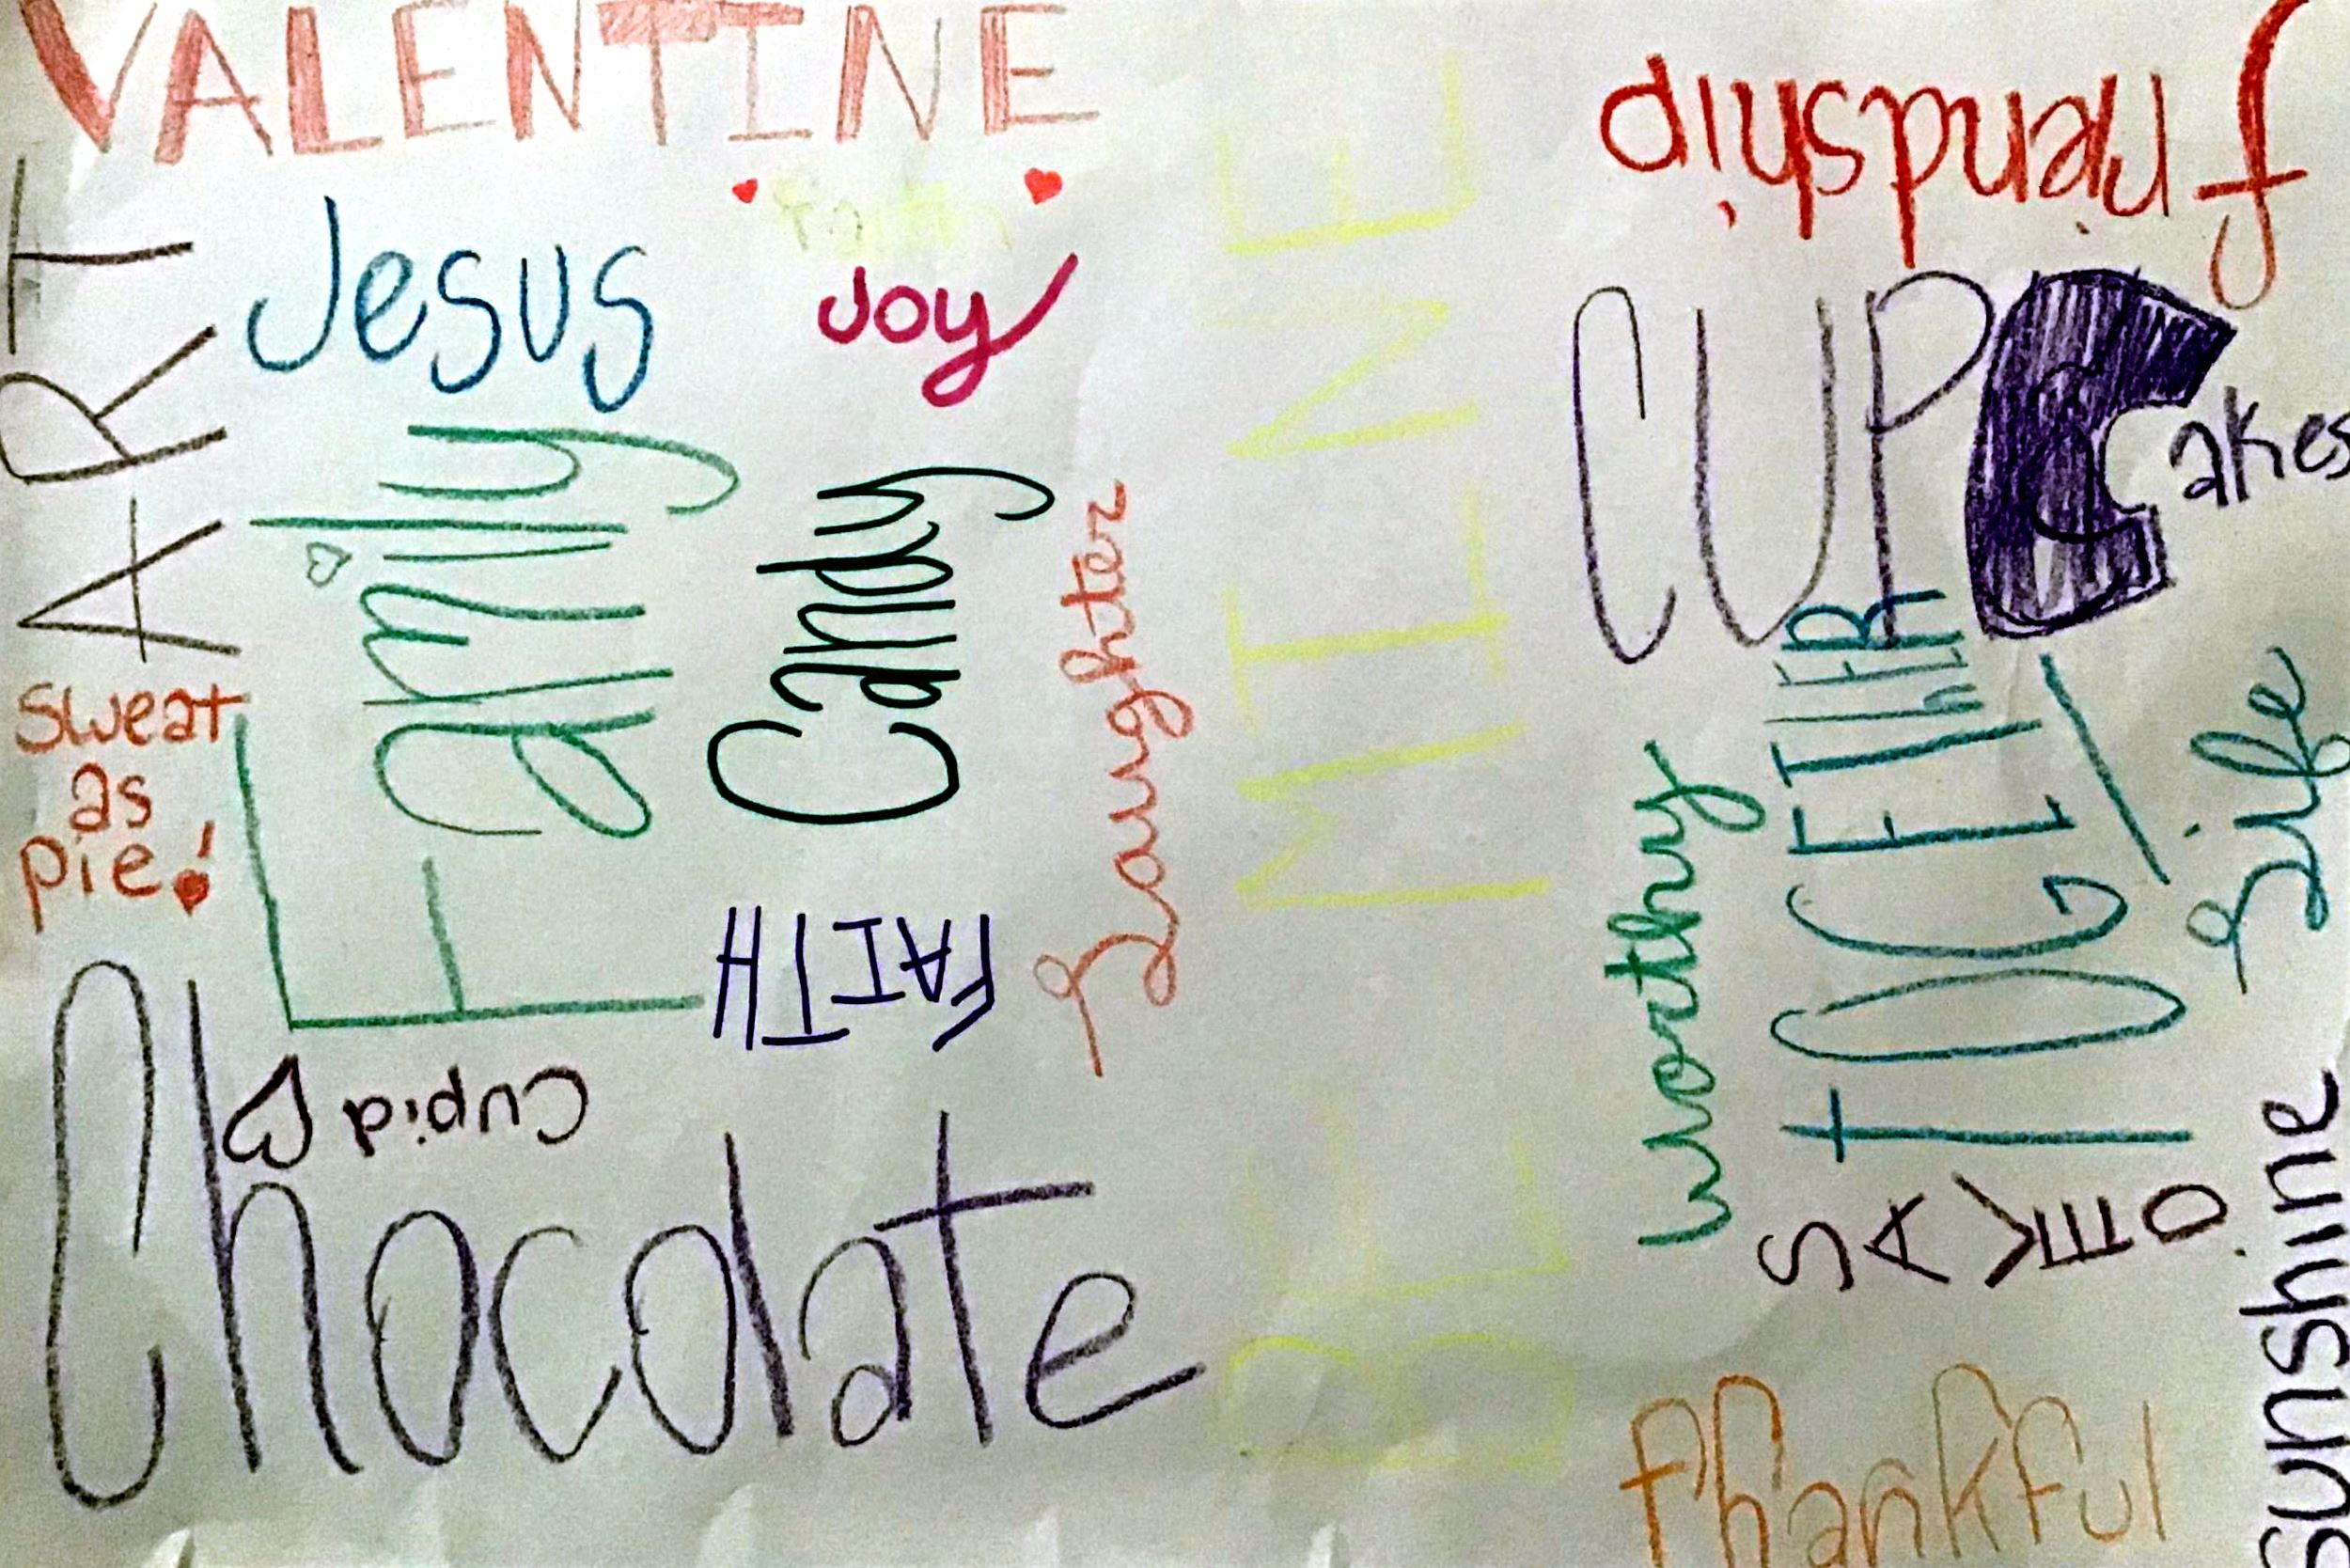 VALENTINE
faith
ART
Jesus
Joy
Family
Candy
Laughter
sweat
as
pie!
FAITH
Cupid
Chocolate
BE MINE
friendship
CUPCakes
worthy
tOGETHER
Life
SAVED
thankful
sunshine